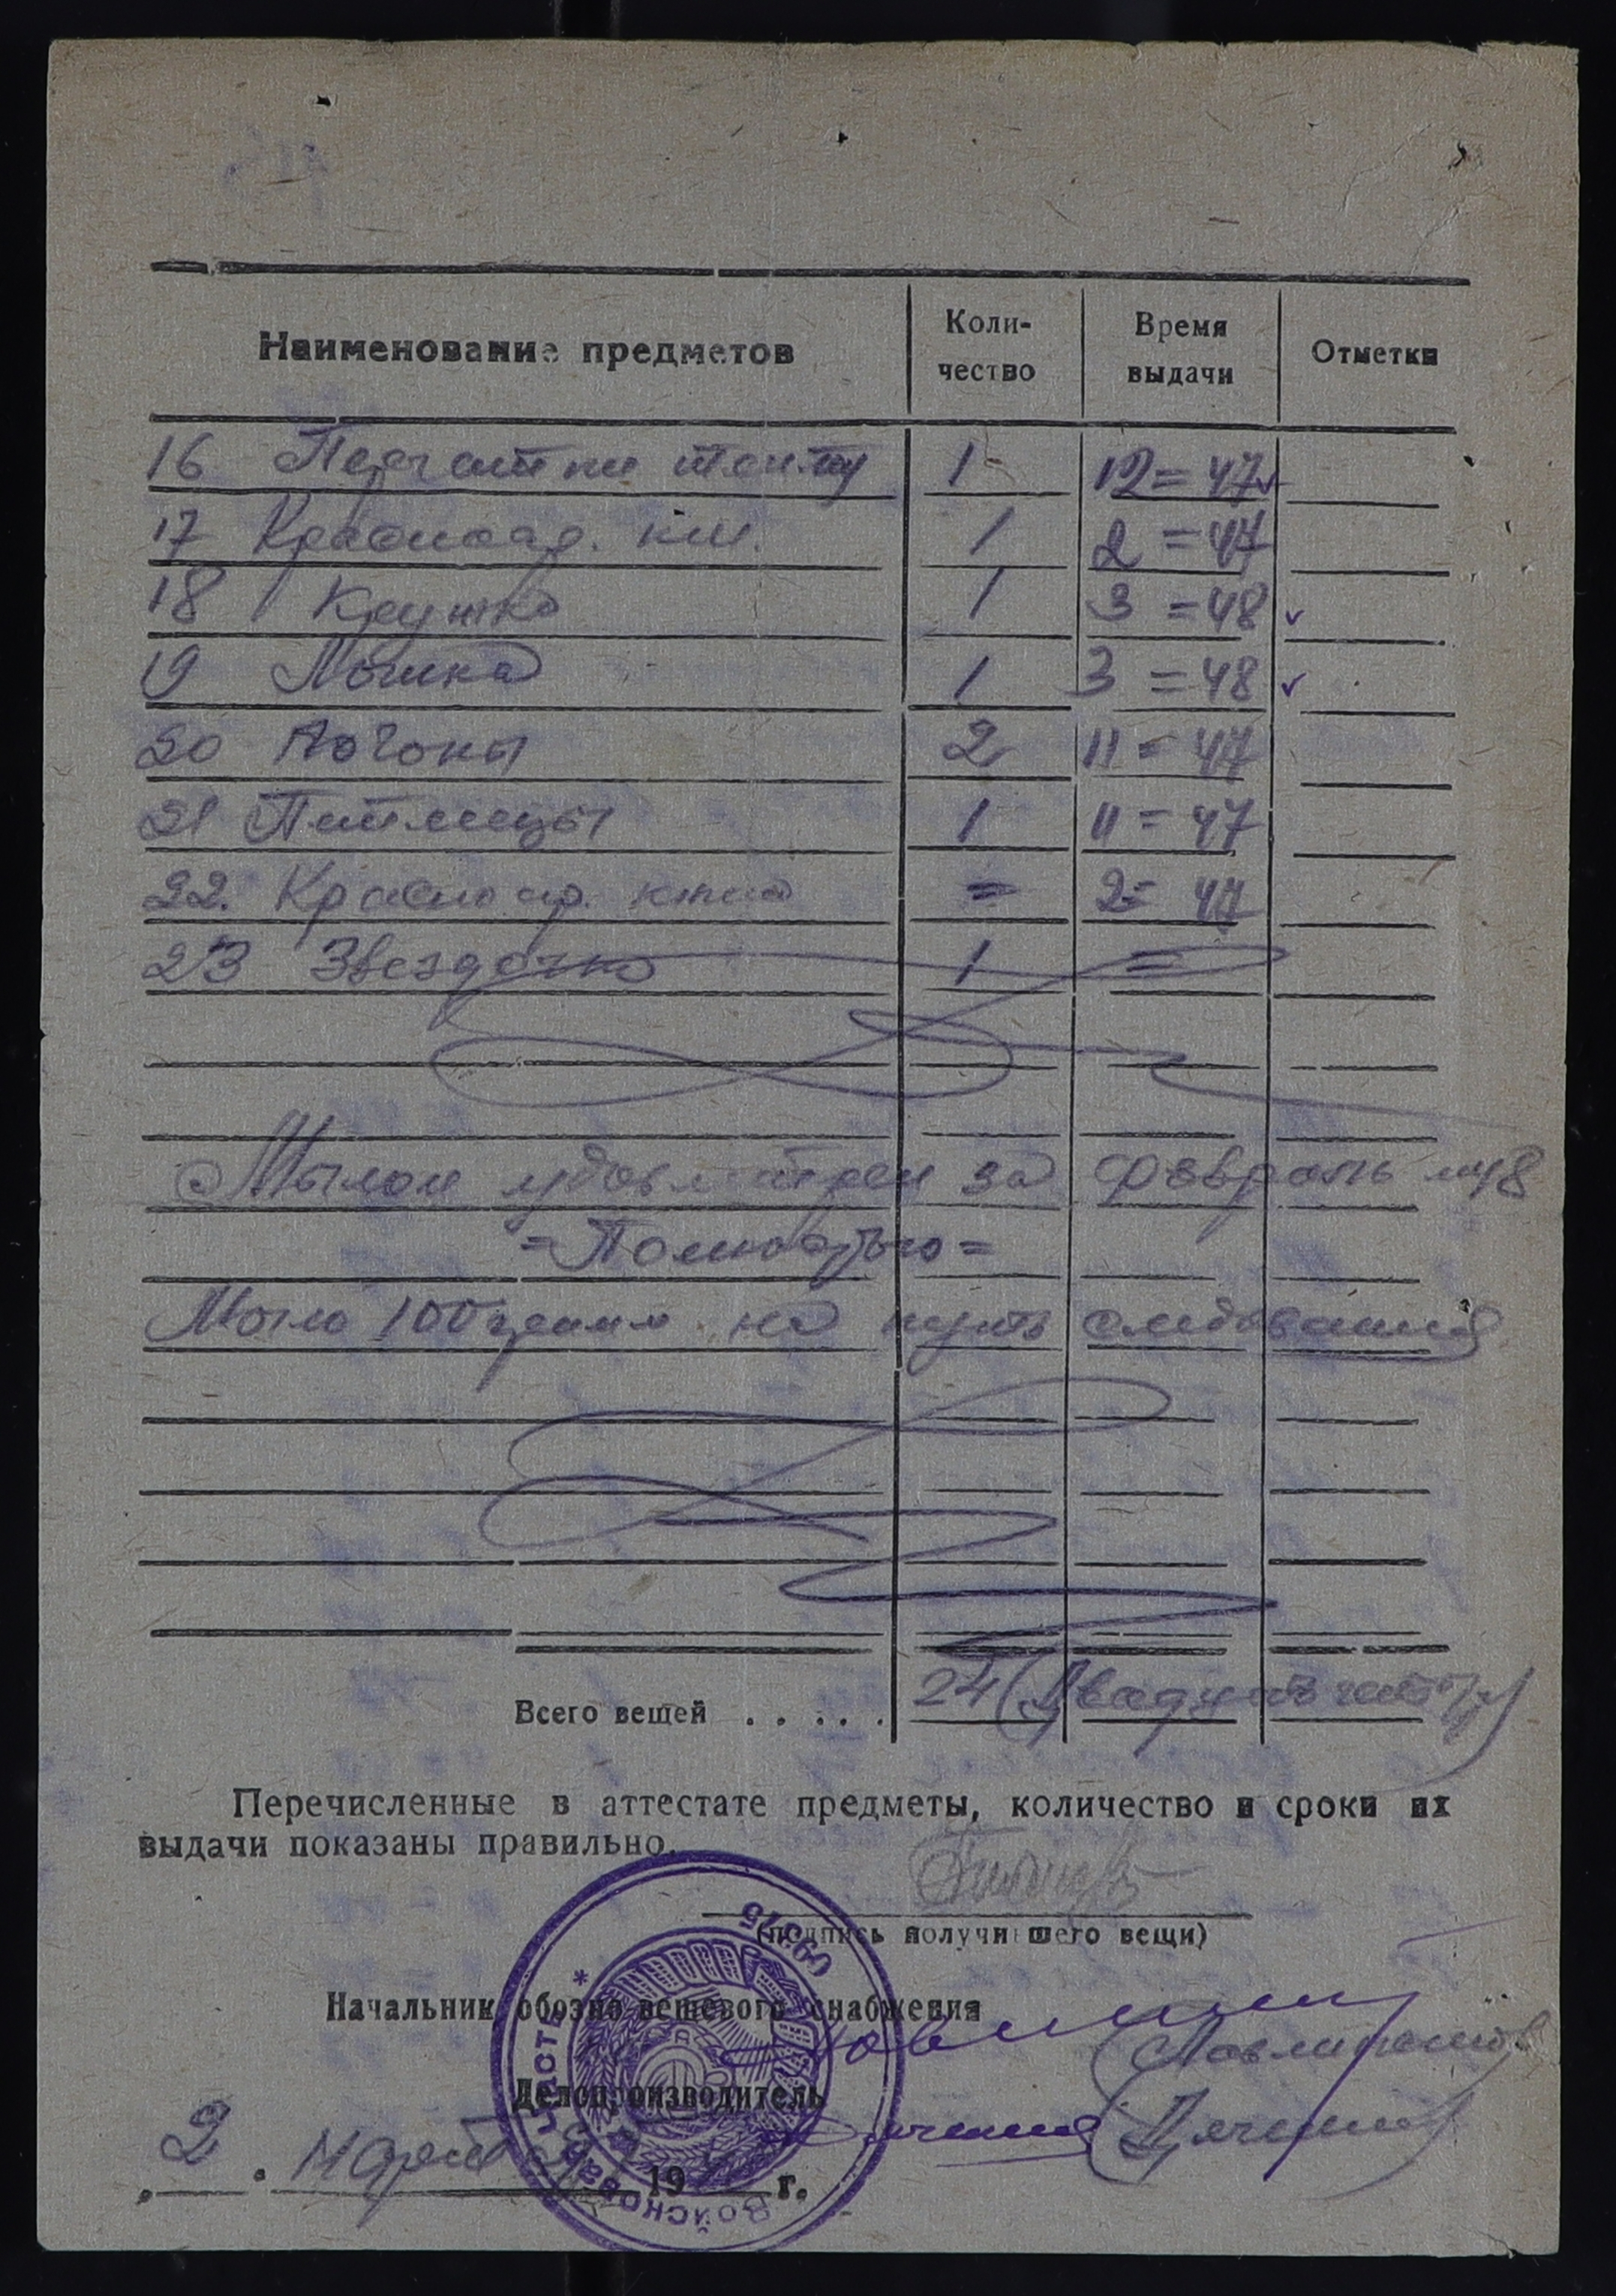 Наименование предметов Коли-чество Время выдачи Отметки
16 Перчатки 1 12=47
17 Красноар. кн. 1 2=47
18 Кружка 1 3=48
19 Ложка 1 3=48
20 Погоны 2 11=47
21 Петлицы 1 11=47
22. Красноар. книж = 2=47
23 Звездочка 1 =
Мылом удовлетворен за февраль 48
=Полностью=
Мыло 100 грамм на путь следования
Всего вещей ..... 24 (Двадцать четыре)
Перечисленные в аттестате предметы, количество и сроки их
выдачи показаны правильно.
(подпись получившего вещи)
Начальник обозно-вещевого снабжения
Делопроизводитель
2 . Марта 194 г.
Войсковая часть * 09375